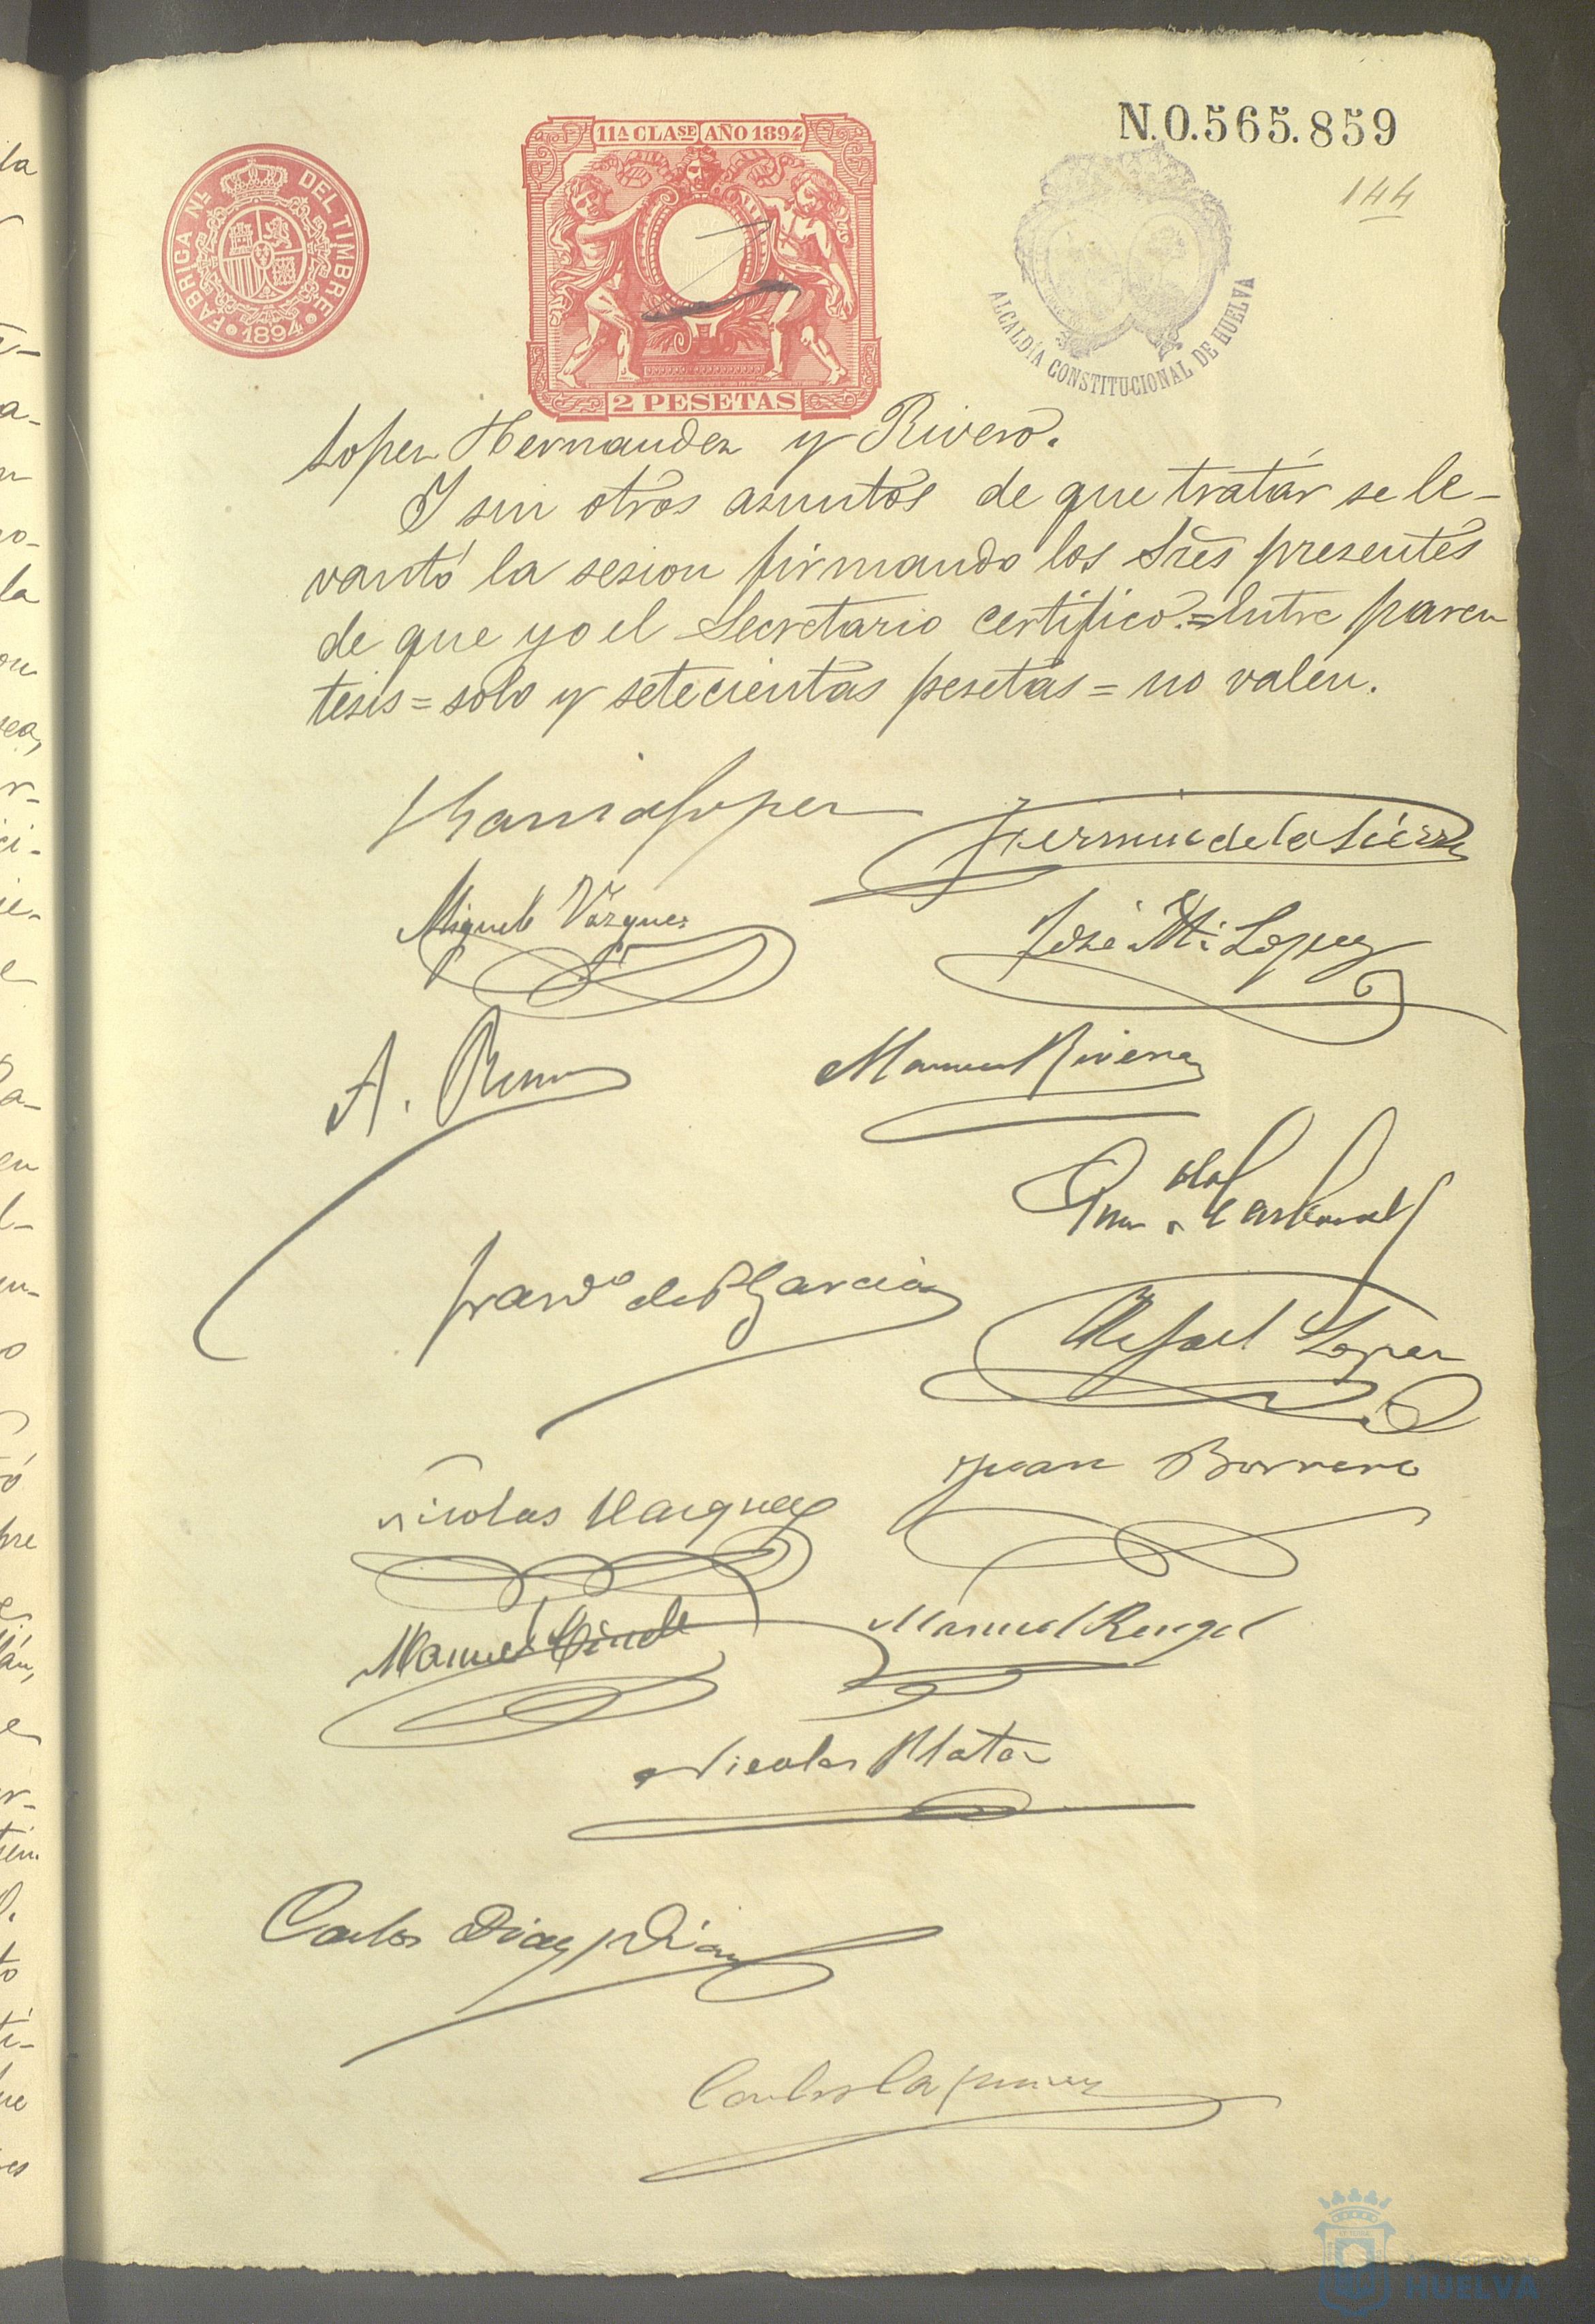 N.0.565.859
11ª CLASE AÑO 1894
FABRICA Nᴸ DEL TIMBRE
1894
144
ALCALDÍA CONSTITUCIONAL DE HUELVA
2 PESETAS
Lopez Hernandez y Rivero.
Y sin otros asuntos de que tratár se le-
vantó la sesion firmando los Sres presentes
de que yo el Secretario certifico.=Entre paren
tesis = solo y setecientas pesetas = no valen.
Lopez
Fermin de la Sierra
Miguel Vázquez
José Mª Lopez
A.
Manuel Rivera
de P. Garcia
Rafael Lopez
Juan Borrero
Nicolas Vazquez
Manuel
Manuel Rengel
Nicolas Mata
Carlos Diaz y Diaz
Carlos
HUELVA